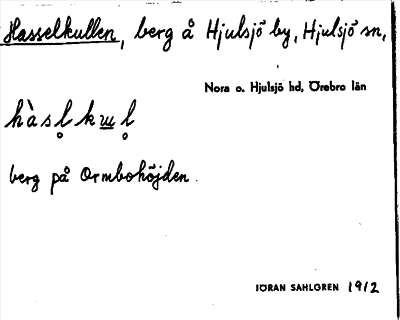 Hasselkullen, berg å Hjulsjö by, Hjulsjö sn,
Nora o. Hjulsjö hd, Örebro län
hàsl̥kɯl̥
berg på Ormbohöjden.
JÖRAN SAHLGREN 1912